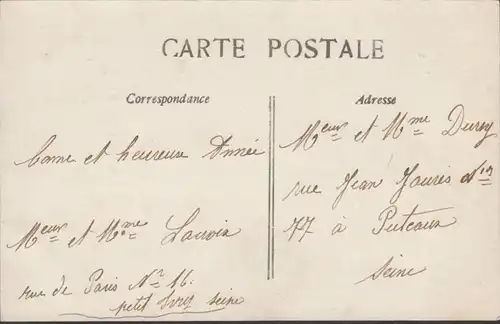 CARTE POSTALE
Correspondance
bonne et heureuse Année
Meur et Mme
rue de Paris No 16.
petit Ivry Seine
Adresse
Meur et Mme Durey
rue Jean Jaurès No
77 à Puteaux
Seine